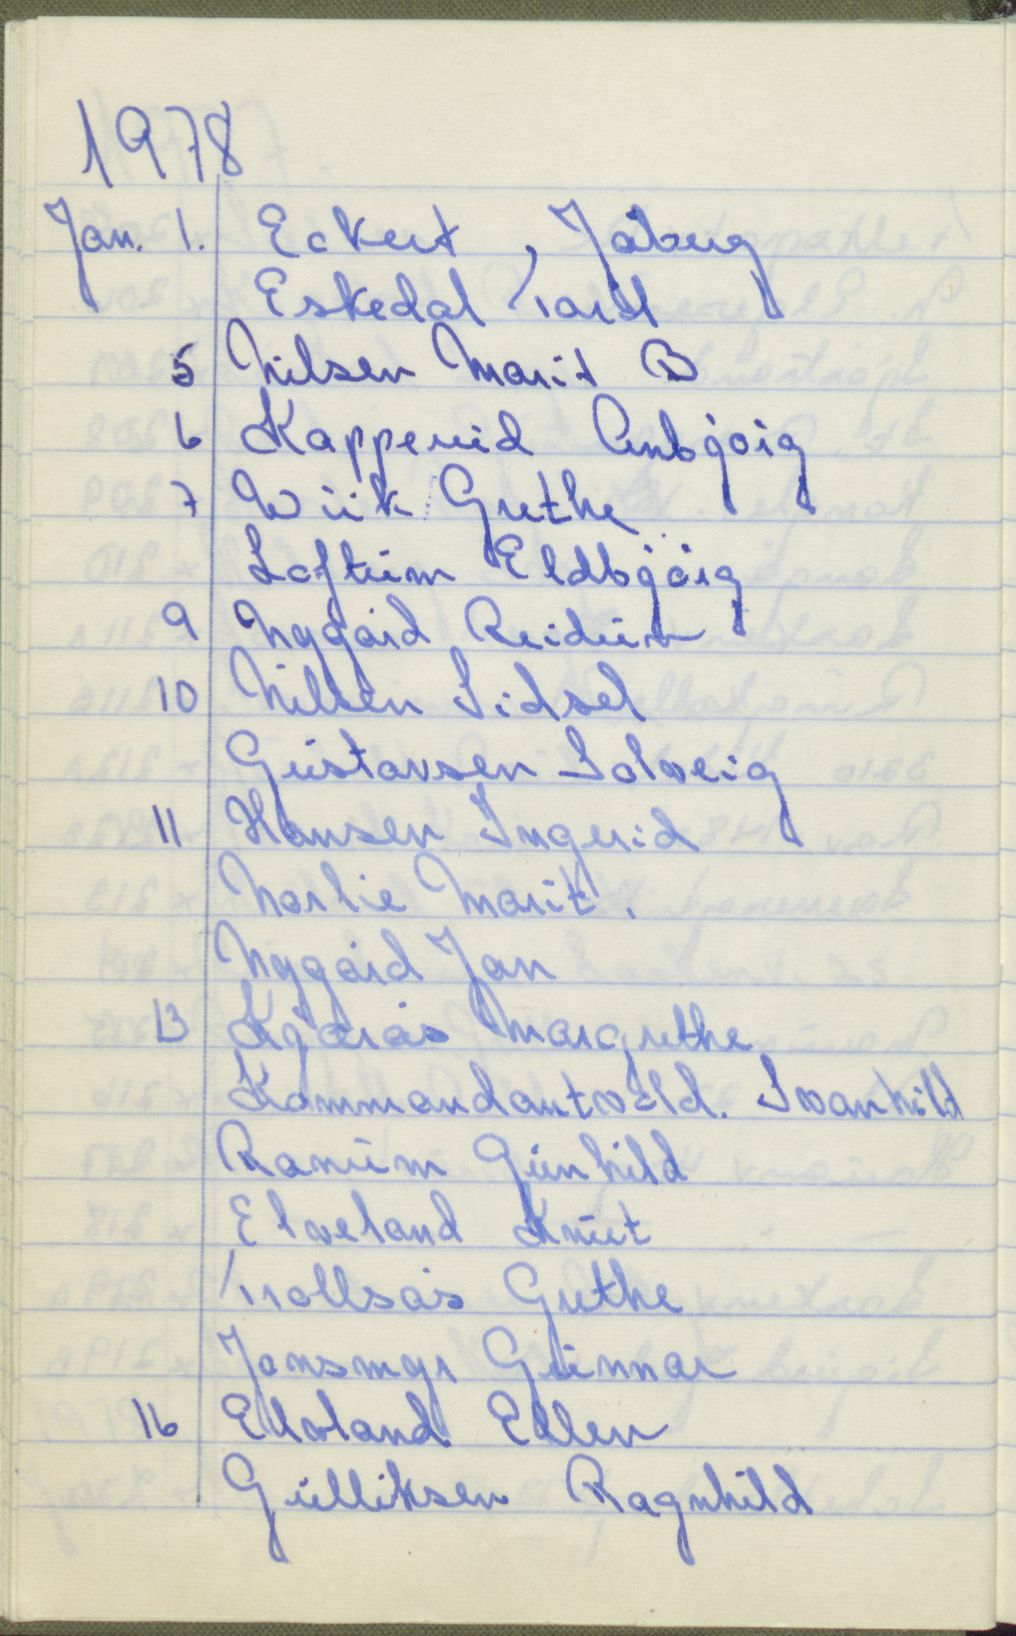 1978
Jan. 1. Eckert, Jaberg
Eskedal Toril
5 Nilsen Marit B
6 Kapperud Anbjørg
7 Wiik Grethe
Loftum Eldbjørg
9 Nygård Reidun
10 Nilsen Sidsel
Gustavsen Solveig
11 Hansen Ingerid
Narlie Marit.
Nygård Jan
13 Kjærås Margrethe
Kommandantvold. Svanhild
Ranum Gunhild
Elveland Knut
Trollsås Grethe
Jansmyr Gunnar
16 Elvland Ellen
Gulliksen Ragnhild